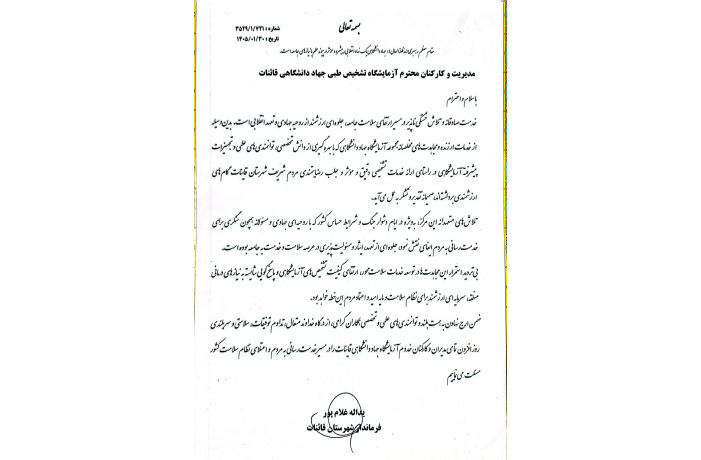 بسمه تعالی
شماره: ۳۵۲۹/۱/۷۲۱
تاریخ: ۱۴۰۵/۰۱/۳۰
مقام معظم رهبری: جهاد دانشگاهی یک نهاد انقلابی، پیشرو و مؤثر در پیوند علم با نیازهای جامعه است.
مدیریت و کارکنان محترم آزمایشگاه تشخیص طبی جهاد دانشگاهی قائنات
با سلام و احترام
خدمت صادقانه و تلاش خستگی ناپذیر در مسیر ارتقای سلامت جامعه، جلوه ای ارزشمند از روحیه جهادی و تعهد انقلابی است. بدین وسیله
از خدمات ارزنده و مجاهدت های مخلصانه مجموعه آزمایشگاه جهاد دانشگاهی که با بهره گیری از دانش تخصصی، توانمندی های علمی و تجهیزات
پیشرفته آزمایشگاهی در راستای ارائه خدمات تشخیصی دقیق و مؤثر و جلب رضایتمندی مردم شریف شهرستان قاینات گام های
ارزشمندی برداشته اند، صمیمانه تقدیر و تشکر به عمل می آید.
تلاش های متعهدانه این مرکز، به ویژه در ایام دشوار جنگ و شرایط حساس کشور که با روحیه ای جهادی و مسئولانه همچون سنگری برای
خدمت رسانی به مردم ایفای نقش نمود، جلوه ای از تعهد، ایثار و مسئولیت پذیری در عرصه سلامت و خدمت به جامعه بوده است.
بی تردید استمرار این مجاهدت ها در توسعه خدمات سلامت محور، ارتقای کیفیت تشخیص های آزمایشگاهی و پاسخ گویی شایسته به نیازهای درمانی
منطقه، سرمایه ای ارزشمند برای نظام سلامت و مایه امید و اعتماد مردم این خطه خواهد بود.
ضمن ارج نهادن به همت بلند و توانمندی های علمی و تخصصی همکاران گرامی، از درگاه خداوند متعال، تداوم توفیقات، سلامتی و سربلندی
روز افزون تمامی مدیران و کارکنان خدوم آزمایشگاه جهاد دانشگاهی قاینات را در مسیر خدمت رسانی به مردم و اعتلای نظام سلامت کشور
مسئلت می نماییم
یداله غلام پور
فرماندار شهرستان قائنات